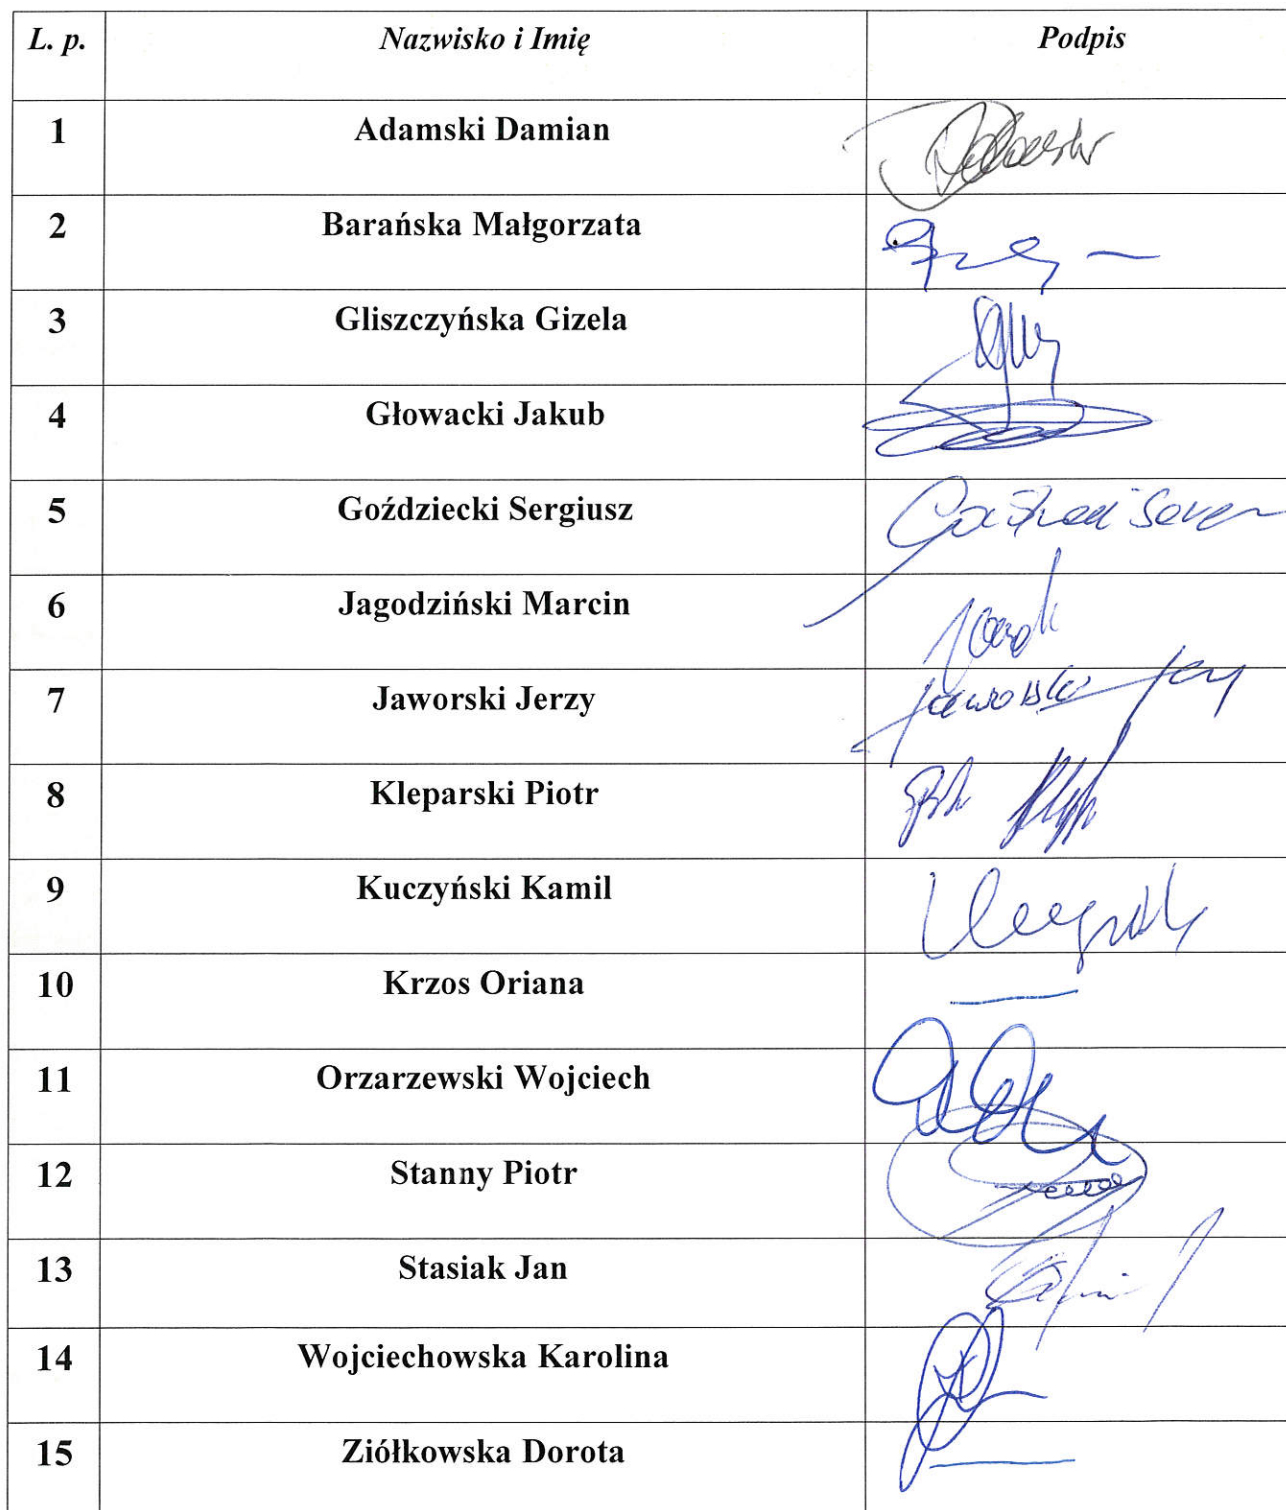 L. p. Nazwisko i Imię Podpis
1 Adamski Damian
2 Barańska Małgorzata
3 Gliszczyńska Gizela
4 Głowacki Jakub
5 Goździecki Sergiusz
6 Jagodziński Marcin
7 Jaworski Jerzy Jaworski Jerzy
8 Kleparski Piotr
9 Kuczyński Kamil
10 Krzos Oriana
11 Orzarzewski Wojciech
12 Stanny Piotr
13 Stasiak Jan
14 Wojciechowska Karolina
15 Ziółkowska Dorota